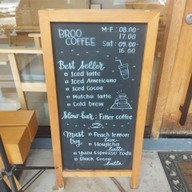 BROO COFFEE
M-F : 08.00 - 17.00
Sat : 09.00 - 16.00
Best Seller
Iced latte
Iced Americano
Iced Cocoa
Matcha latte
Cold brew
Slow bar : Filter coffee
Must Try
Peach lemon tea
Houjicha latte
Yuzu Espresso Soda
Black Cocoa latte